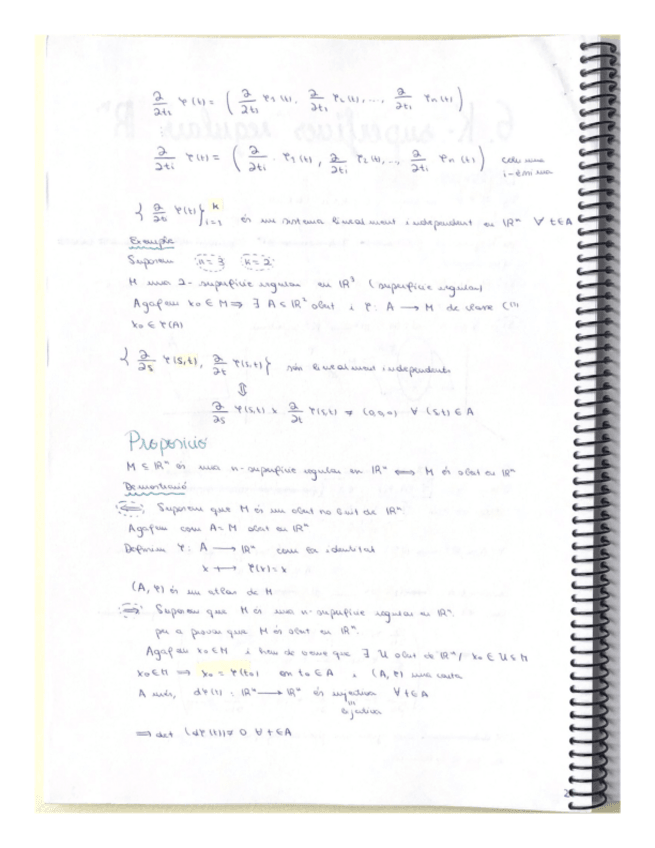 ∂/∂t₁ φ(t) = ( ∂/∂t₁ φ₁(t), ∂/∂t₁ φ₂(t), ..., ∂/∂t₁ φₙ(t) )
∂/∂tᵢ φ(t) = ( ∂/∂tᵢ φ₁(t), ∂/∂tᵢ φ₂(t), ..., ∂/∂tᵢ φₙ(t) ) columna i-èsima
{ ∂/∂tᵢ φ(t) }ᵢ₌₁ᵏ és un sistema linealment independent en ℝⁿ ∀ t∈A
Exemple
Suposem n=3 k=2
M una 2-superfície regular en ℝ³ (superfície regular)
Agafem x₀∈M ⇒ ∃ A⊆ℝ² obert i φ: A → M de classe C⁽¹⁾
x₀∈φ(A)
{ ∂/∂s φ(s,t), ∂/∂t φ(s,t) } són linealment independents
⇕
∂/∂s φ(s,t) × ∂/∂t φ(s,t) ≠ (0,0,0) ∀ (s,t)∈A
Proposició
M⊆ℝⁿ és una n-superfície regular en ℝⁿ ⟺ M és obert en ℝⁿ
Demostració
⟸ Suposem que M és un obert no buit de ℝⁿ.
Agafem com A=M obert en ℝⁿ
Definim φ: A → ℝⁿ com la identitat
x ↦ φ(x)=x
(A, φ) és un atlas de M
⟹ Suposem que M és una n-superfície regular en ℝⁿ.
per a provar que M és obert en ℝⁿ.
Agafem x₀∈M i hem de veure que ∃ U obert de ℝⁿ / x₀∈U⊆M
x₀∈M ⟹ x₀=φ(t₀) on t₀∈A i (A, φ) una carta
A més, dφ(t): ℝⁿ → ℝⁿ és injectiva ∀ t∈A
bijectiva
⟹ det (dφ(t)) ≠ 0 ∀ t∈A
2